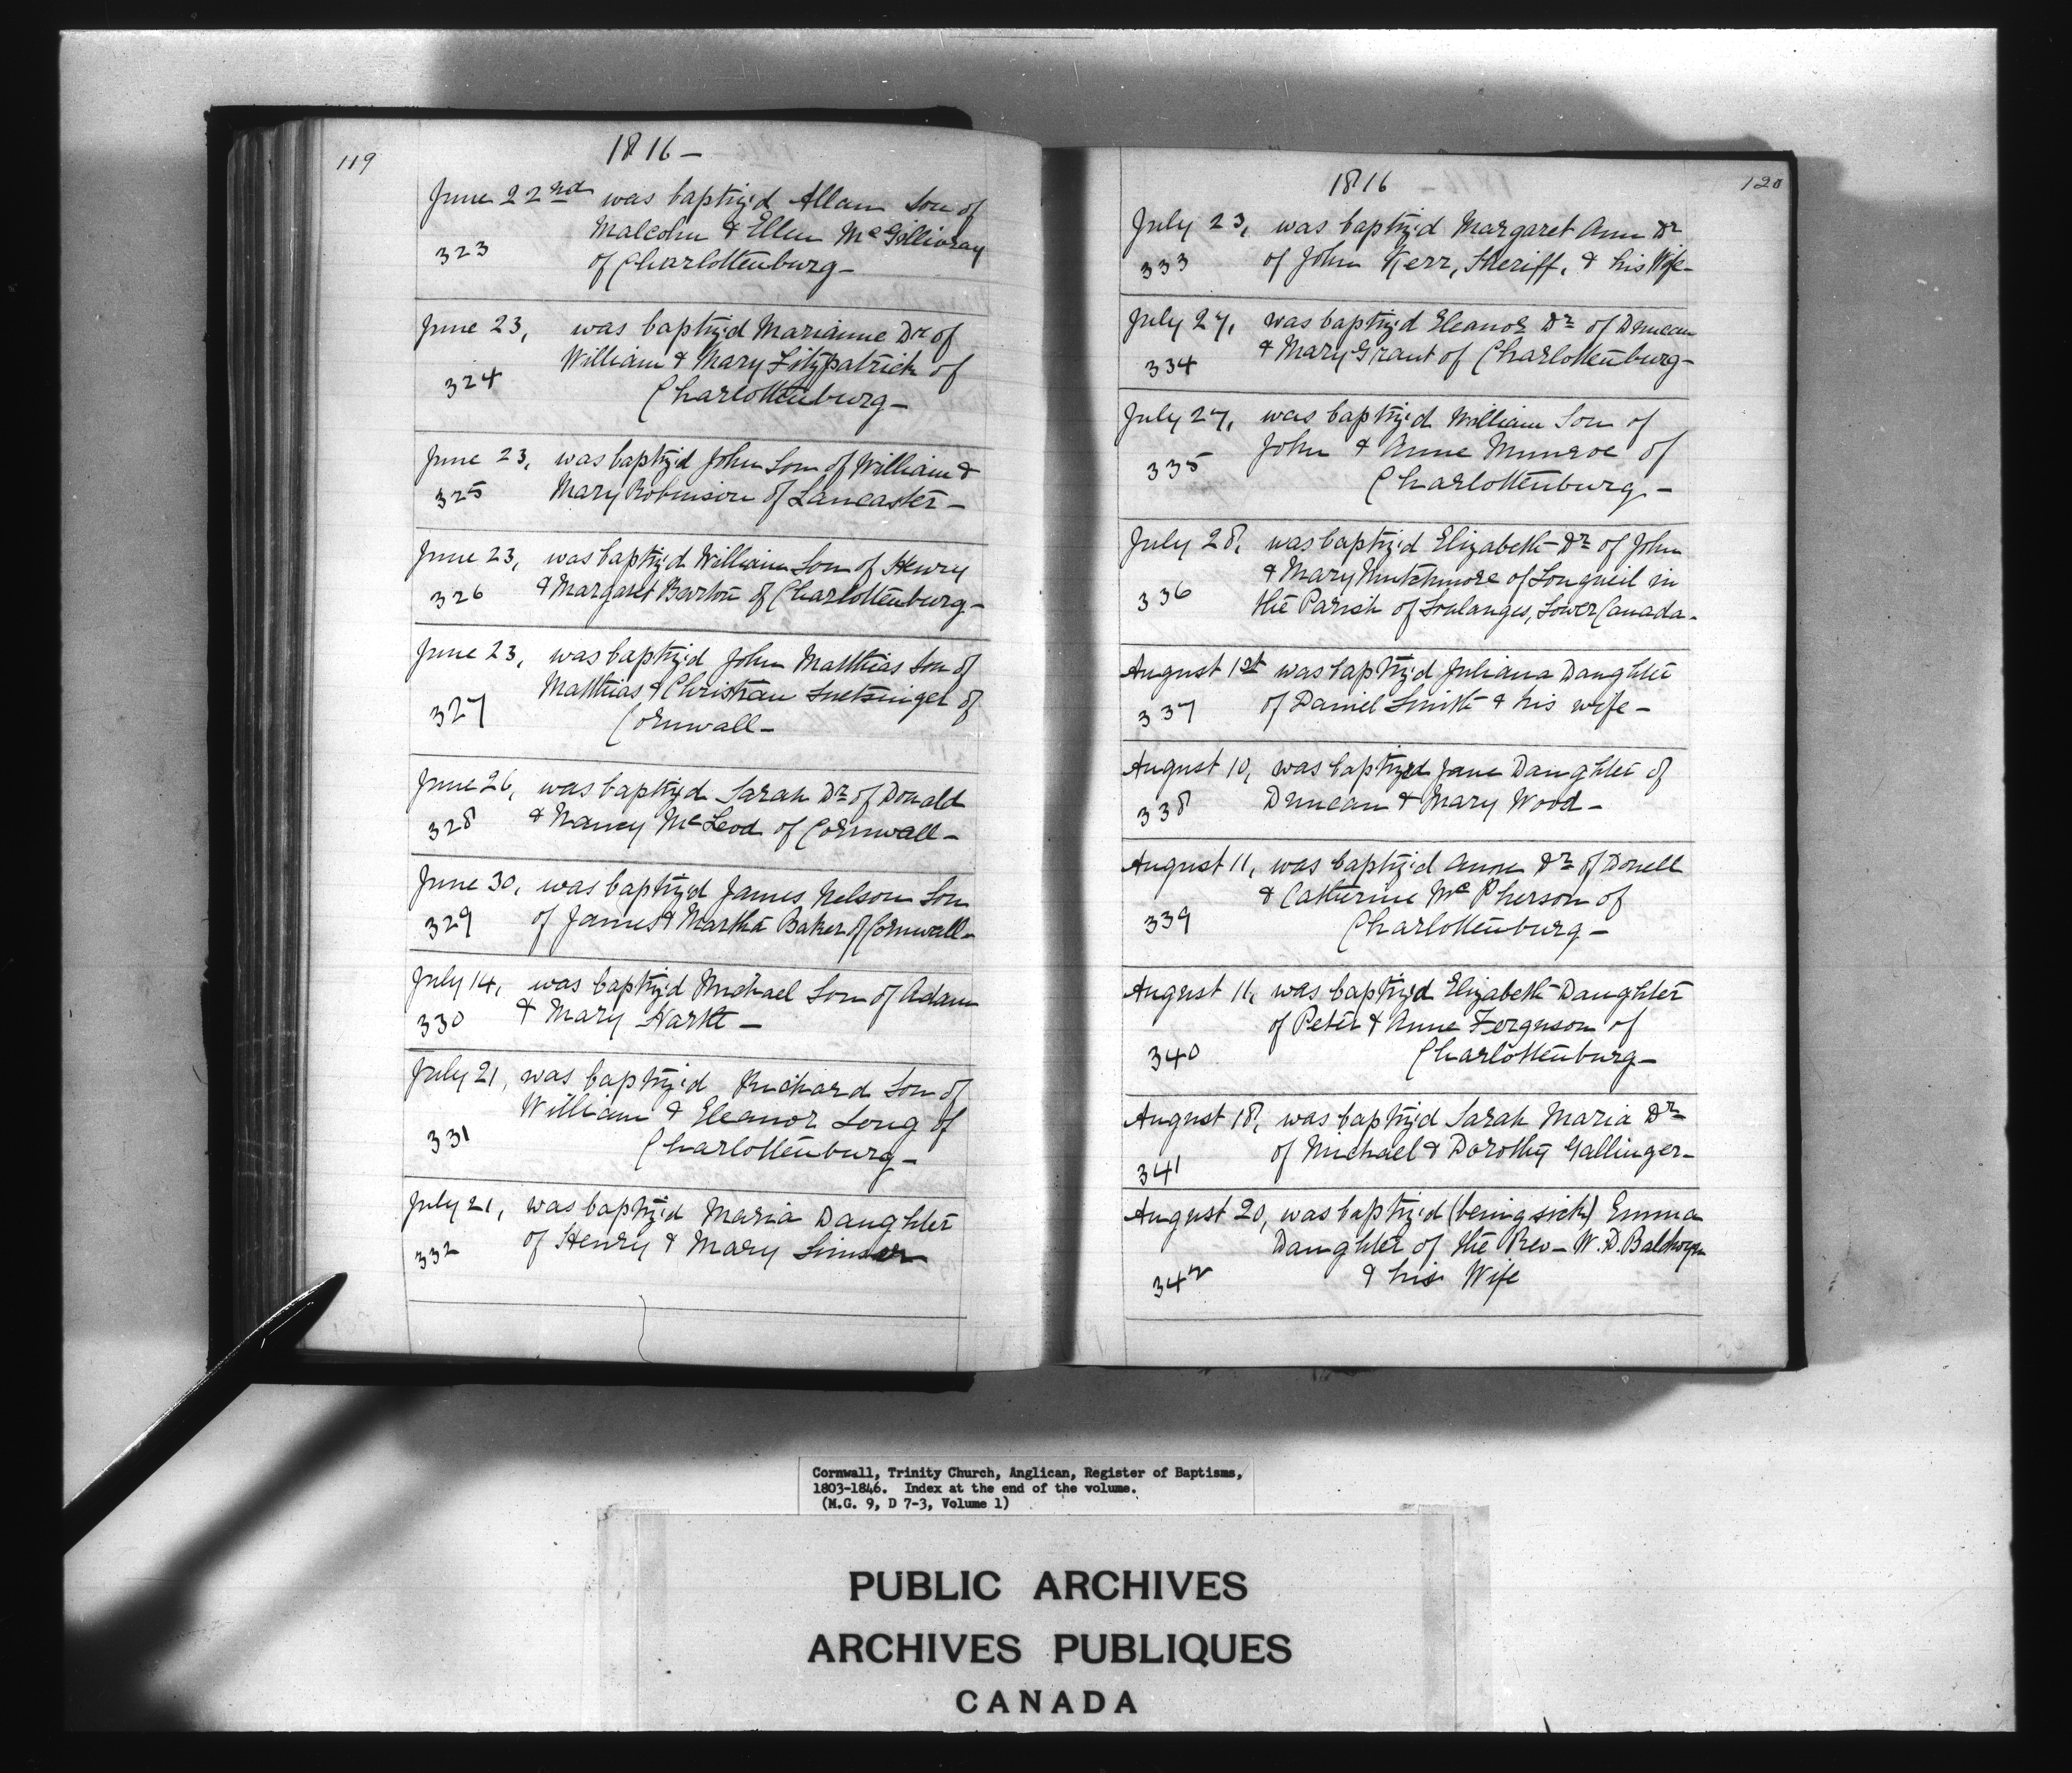 119
1816 —
June 22nd was baptiz'd Allan Son of
Malcolm & Ellen McGillivray
323
of Charlottenburg —
June 23, was baptiz'd Marianne Dr of
William & Mary Fitzpatrick of
324
Charlottenburg —
June 23, was baptiz'd John Son of William &
325 Mary Robinson of Lancaster —
June 23, was baptiz'd William Son of Henry
326 & Margaret Barton of Charlottenburg —
June 23, was baptiz'd John Matthias Son of
Matthias & Christian Snetsinger of
327
Cornwall —
June 26, was baptiz'd Sarah Dr of Donald
328 & Nancy McLeod of Cornwall —
June 30, was baptiz'd James Nelson Son
329 of James & Martha Baker of Cornwall —
July 14, was baptiz'd Michael Son of Adam
330 & Mary Hartle —
July 21, was baptiz'd Richard Son of
William & Eleanor Long of
331
Charlottenburg —
July 21, was baptiz'd Maria Daughter
332 of Henry & Mary
120
1816
July 23, was baptiz'd Margaret Ann Dr
333 of John Kerr, Sheriff, & his Wife —
July 27, was baptiz'd Eleanor Dr of Duncan
334 & Mary Grant of Charlottenburg —
July 27, was baptiz'd William Son of
335 John & Anne Munroe of
Charlottenburg —
July 28, was baptiz'd Elizabeth Dr of John
& Mary Mutchmore of Longueil in
336
the Parish of Soulanges, Lower Canada —
August 1st was baptiz'd Juliana Daughter
337 of Daniel Smith & his wife —
August 10, was baptized Jane Daughter of
338 Duncan & Mary Wood —
August 11, was baptiz'd Anne Dr of Donell
& Catherine McPherson of
339
Charlottenburg —
August 11, was baptiz'd Elizabeth Daughter
of Peter & Anne Ferguson of
340
Charlottenburg —
August 18, was baptiz'd Sarah Maria Dr
341 of Michael & Dorothy Gallinger —
August 20, was baptiz'd (being sick) Emma
Daughter of the Rev — W. D. Baldwyn
342
& his Wife
Cornwall, Trinity Church, Anglican, Register of Baptisms,
1803-1846. Index at the end of the volume.
(M.G. 9, D 7-3, Volume 1)
PUBLIC ARCHIVES
ARCHIVES PUBLIQUES
CANADA